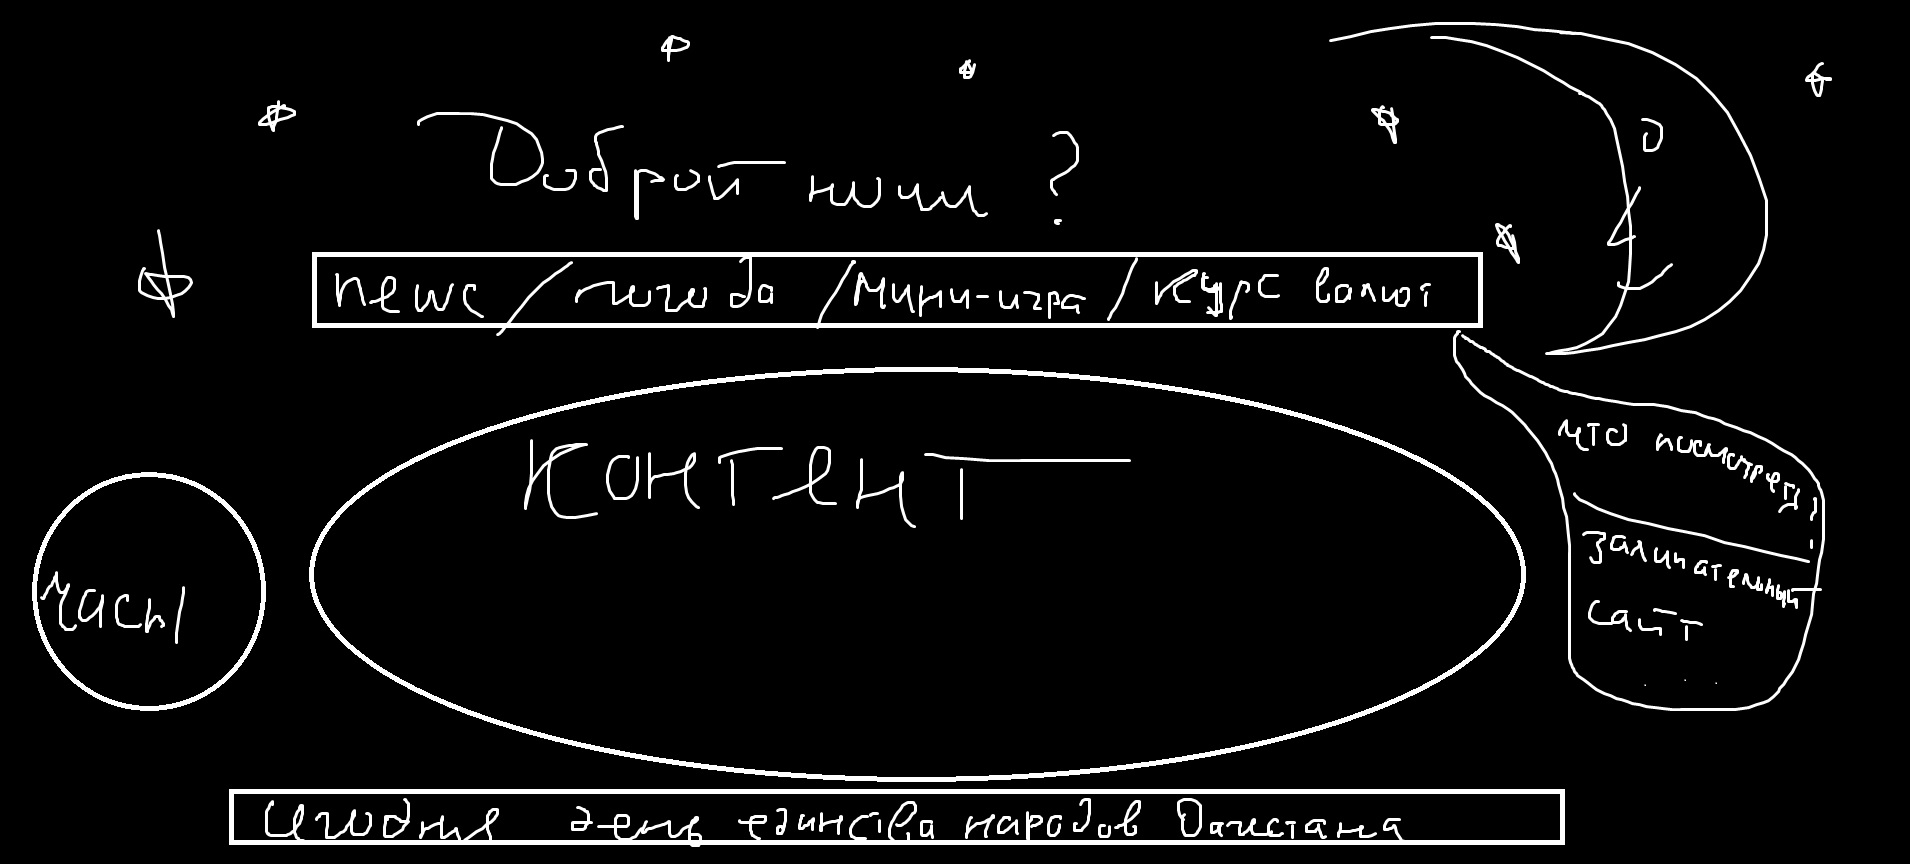 Доброй ночи ?
news / погода / мини-игра / курс валют
контент
что посмотреть?
залипательный
сайт
...
часы
сегодня день единства народов Дагестана